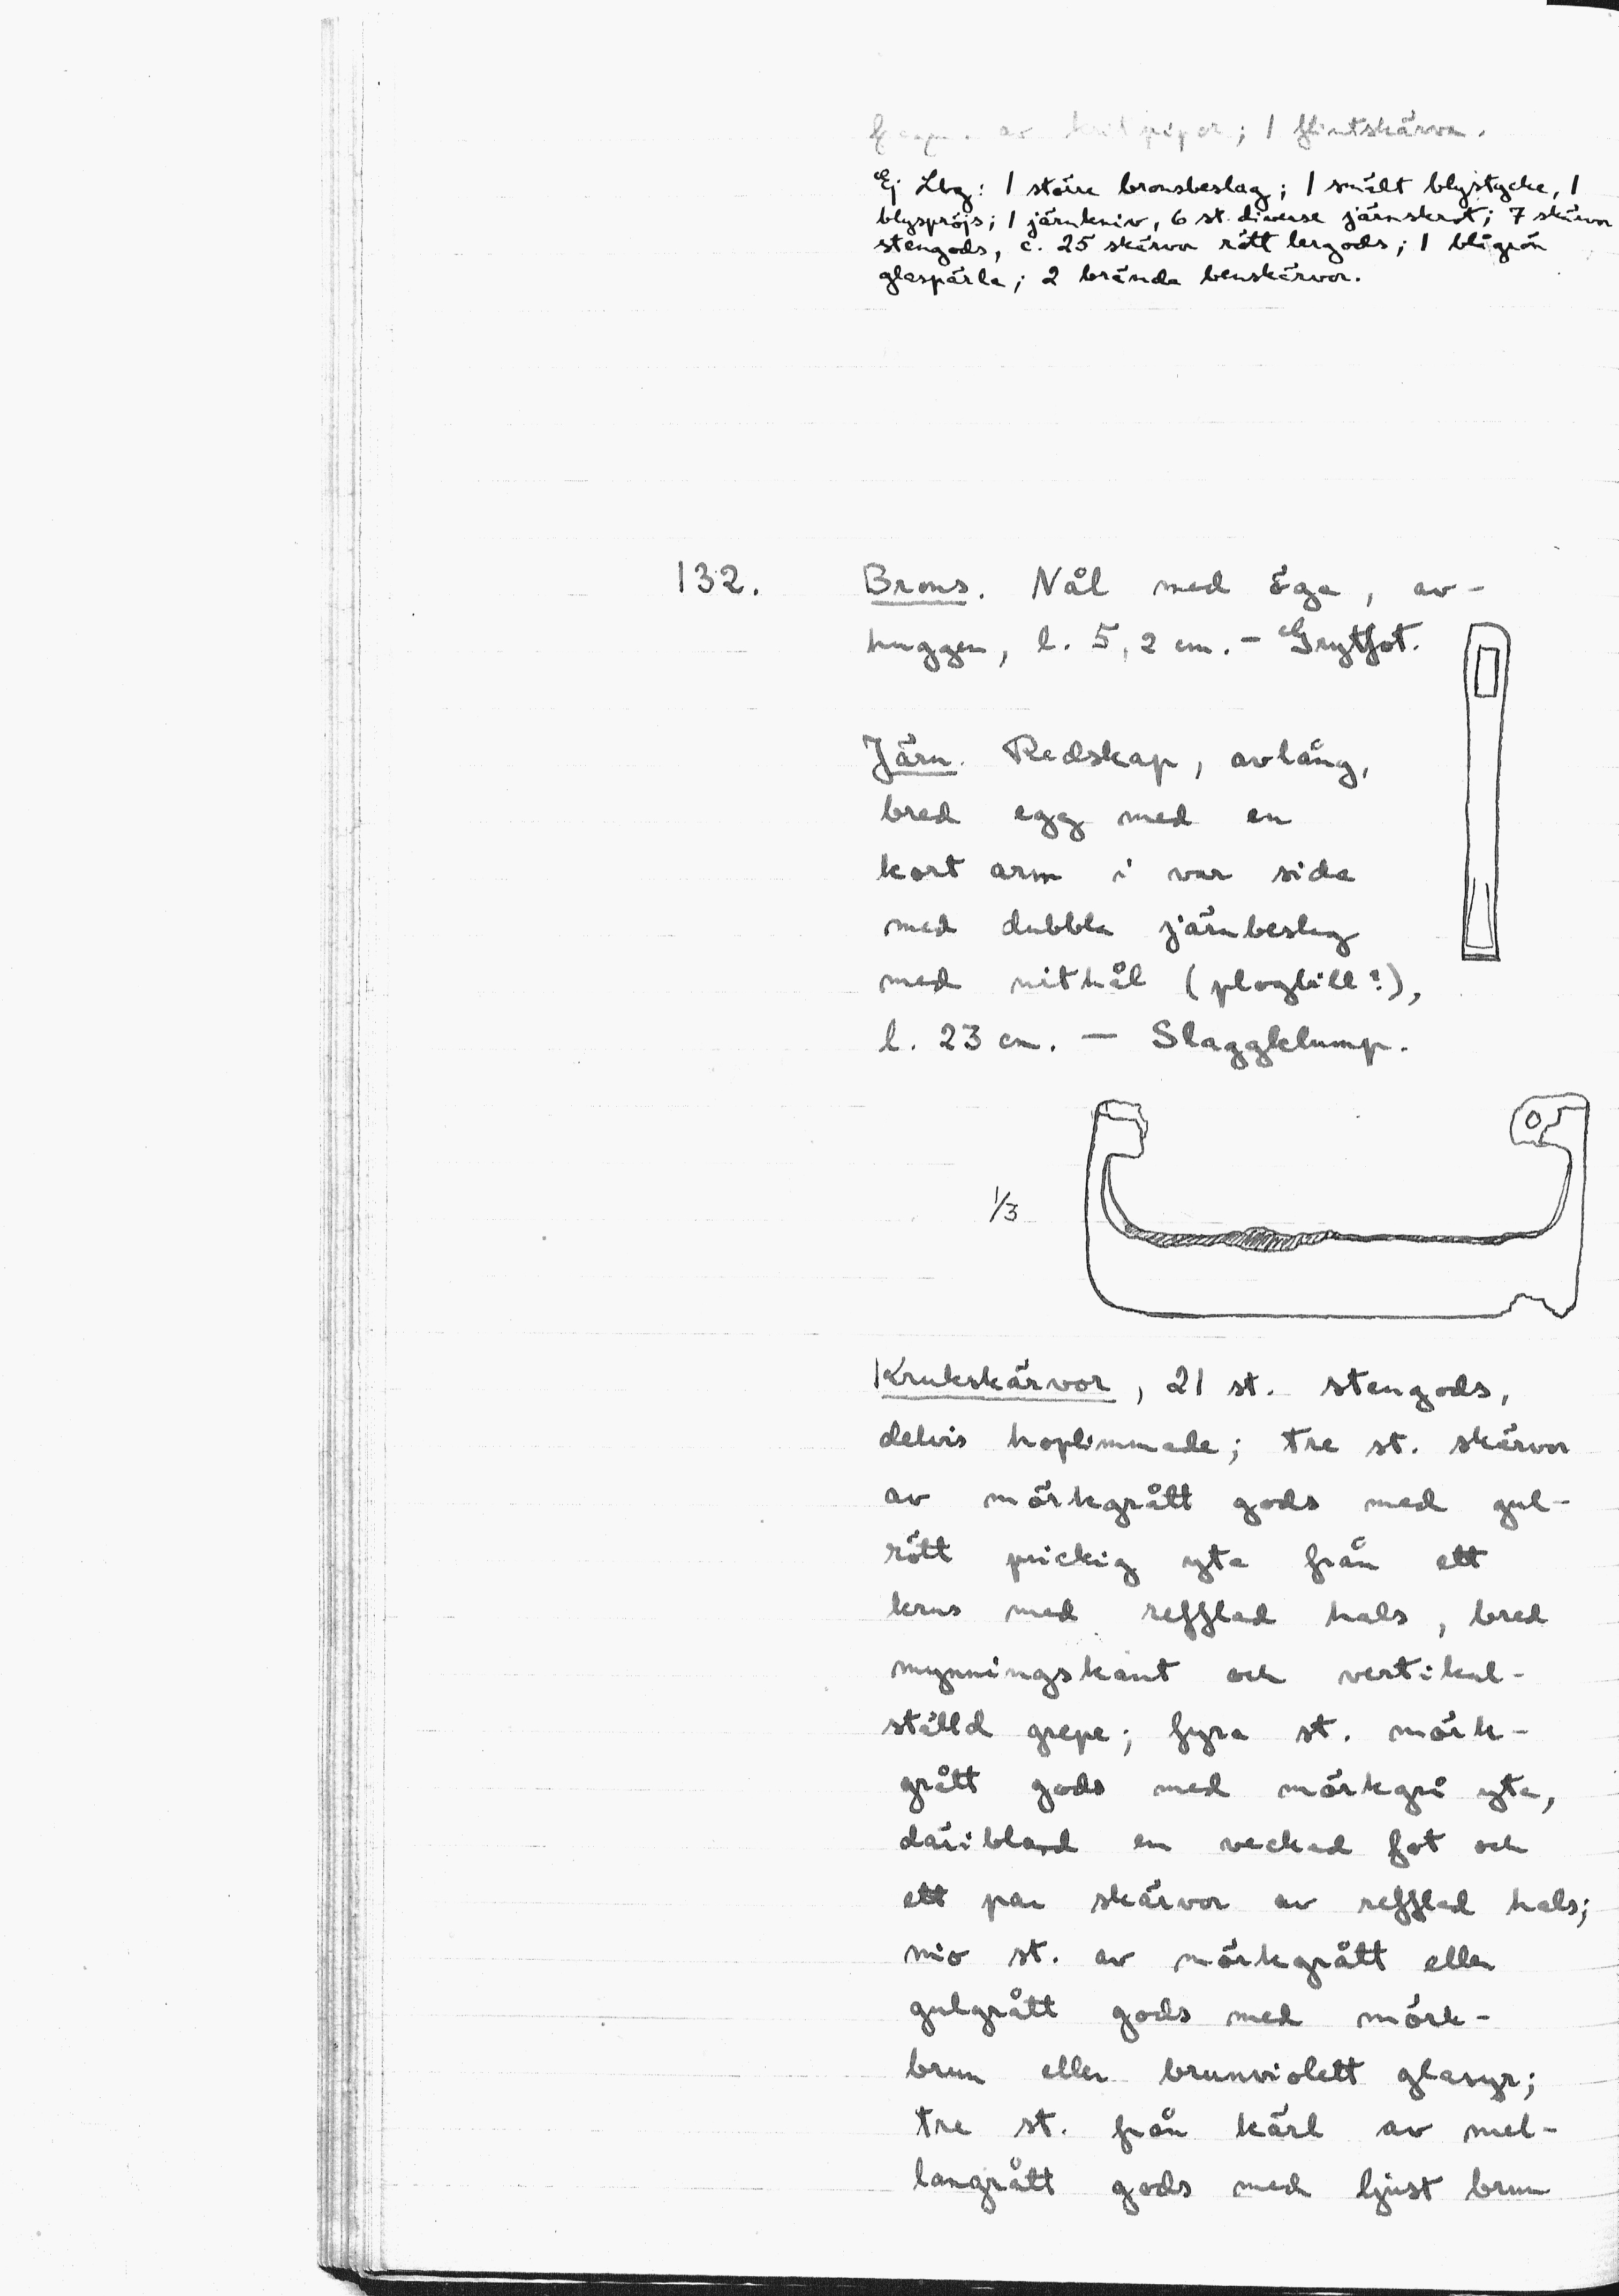 av kritpipor; 1 flintskärva.
Ej Lbg: 1 större bronsbeslag; 1 smält blystycke, 1
blyspröjs; 1 järnkniv, 6 st. diverse järnskrot; 7 skärvor
stengods, c. 25 skärvor rött lergods; 1 blågrön
glaspärla; 2 brända benskärvor.
132. Brons. Nål med öga, av-
huggen, l. 5,2 cm. – Grytfot.
Järn. Redskap, avlång,
bred egg med en
kort arm i var sida
med dubbla järnbeslag
med nithål (plogbill?),
l. 23 cm. — Slaggklump.
1/3
Krukskärvor, 21 st. stengods,
delvis hoplimmade; tre st. skärvor
av mörkgrått gods med gul-
rött prickig yta från ett
krus med refflad hals, bred
mynningskant och vertikal-
ställd grepe; fyra st. mörk-
grått gods med mörkgrå yta,
däribland en veckad fot och
ett par skärvor av refflad hals;
nio st. av mörkgrått eller
gulgrått gods med mörk-
brun eller brunviolett glasyr;
tre st. från kärl av mel-
langrått gods med ljust brun